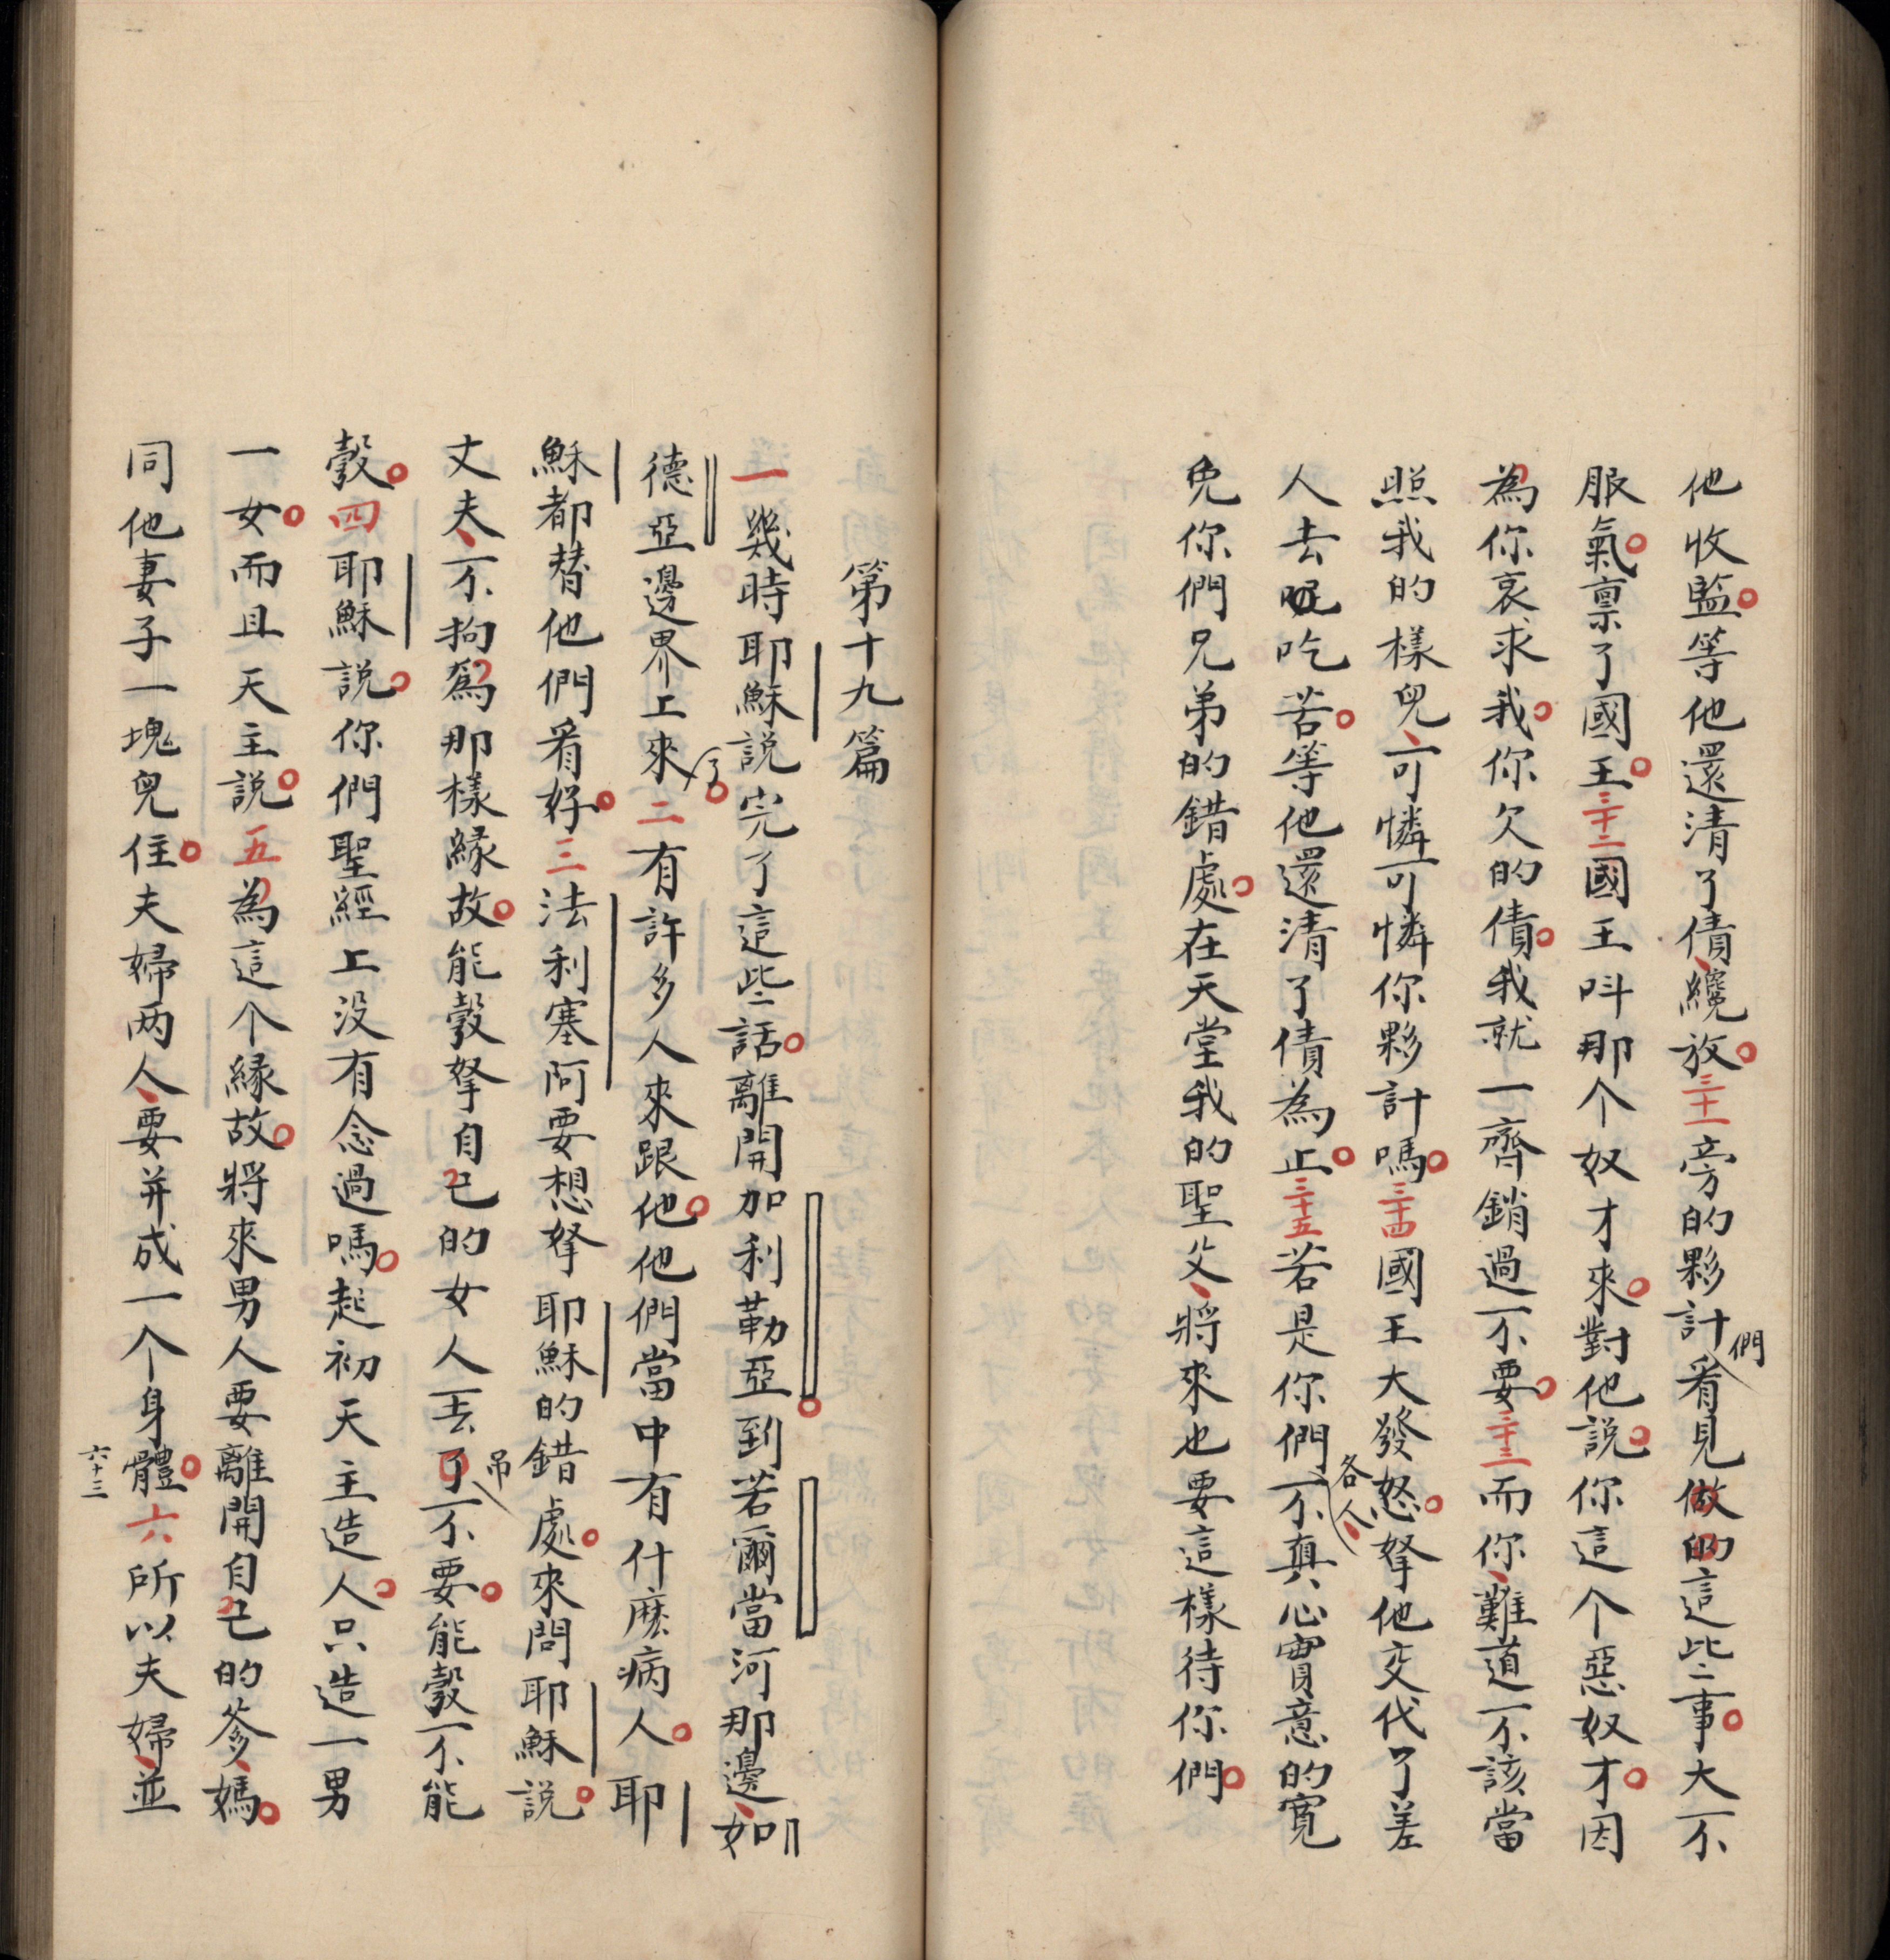 他收監等他還清了債纔放三十一旁的夥計們看見做的這些事大不
服氣禀了國王三十二國王呌那个奴才來對他說你這个惡奴才因
為你哀求我你欠的債我就一齊銷過不要三十三而你難道不該當
照我的樣兒可憐可憐你夥計嗎三十四國王大發怒拏他交代了差
人去吃苦等他還清了債為止三十五若是你們各人不真心實意的寬
免你們兄弟的錯處在天堂我的聖父將來也要這樣待你們
第十九篇
一幾時耶穌説完了這些話離開加利勒亞到若爾當河那邊如
德亞邊界上來了二有許多人來跟他他們當中有什麽病人耶
穌都替他們看好三法利塞阿要想拏耶穌的錯處來問耶穌説
丈夫不拘為那樣緣故能彀拏自己的女人丟吊了不要能彀不能
彀四耶穌説你們聖經上没有念過嗎起初天主造人只造一男
一女而且天主説五為這个緣故將來男人要離開自己的爹媽
同他妻子一塊兒住夫婦两人要并成一个身體六所以夫婦並
六十三